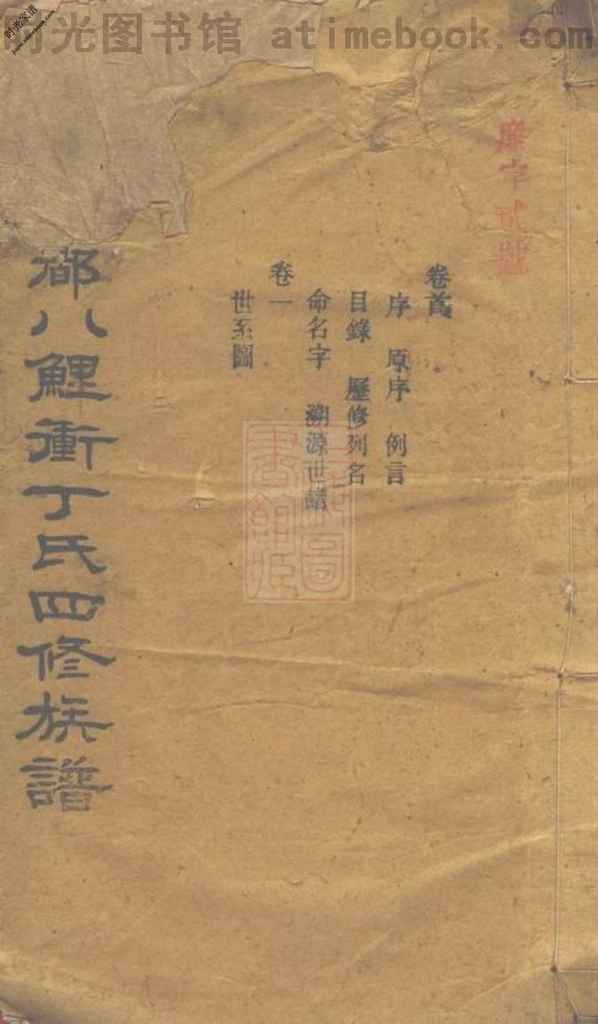 时光图书馆 atimebook.com
时光家谱
字貳號
卷首
序 原序 例言
目錄 歷修列名
命名字 溯源世譜
卷一
世系圖
八鯉衝丁氏四修族譜